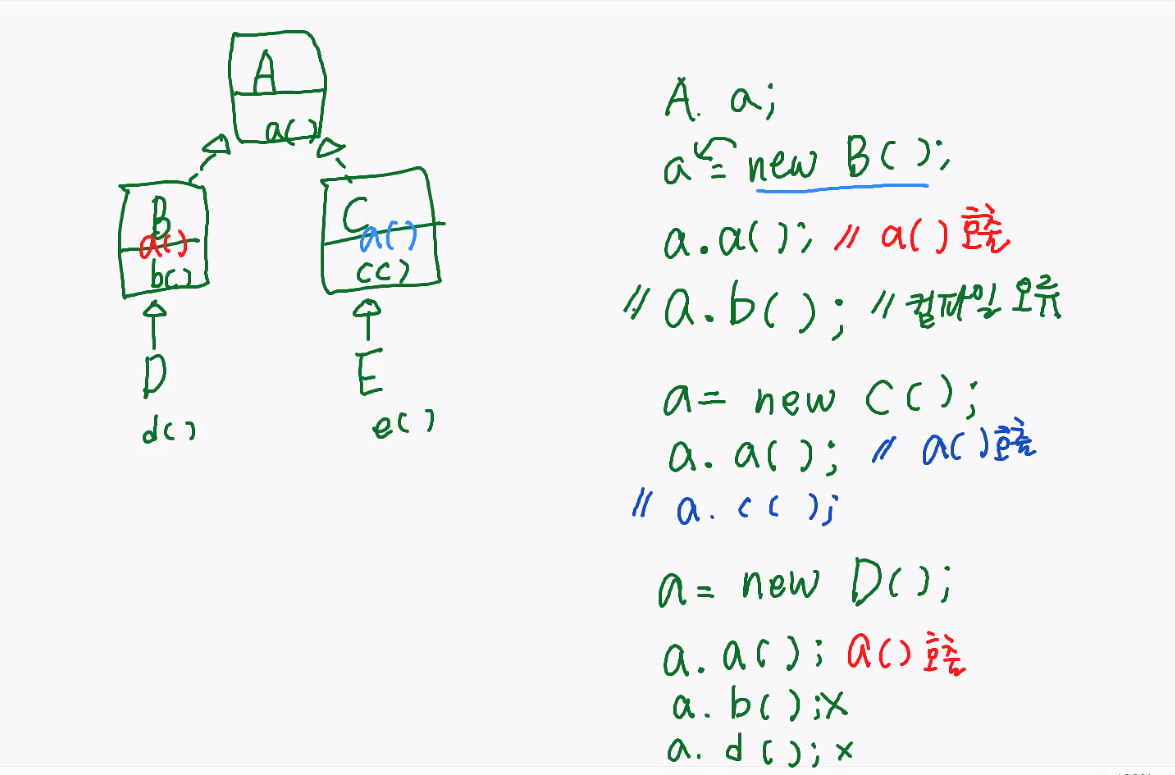 A
a()
B
a()
b()
C
a()
c()
D
d()
E
e()
A. a;
a = new B();
a.a(); // a() 호출
// a.b(); // 컴파일 오류
a = new C();
a. a(); // a() 호출
// a. c();
a = new D();
a. a(); a() 호출
a. b(); x
a. d(); x